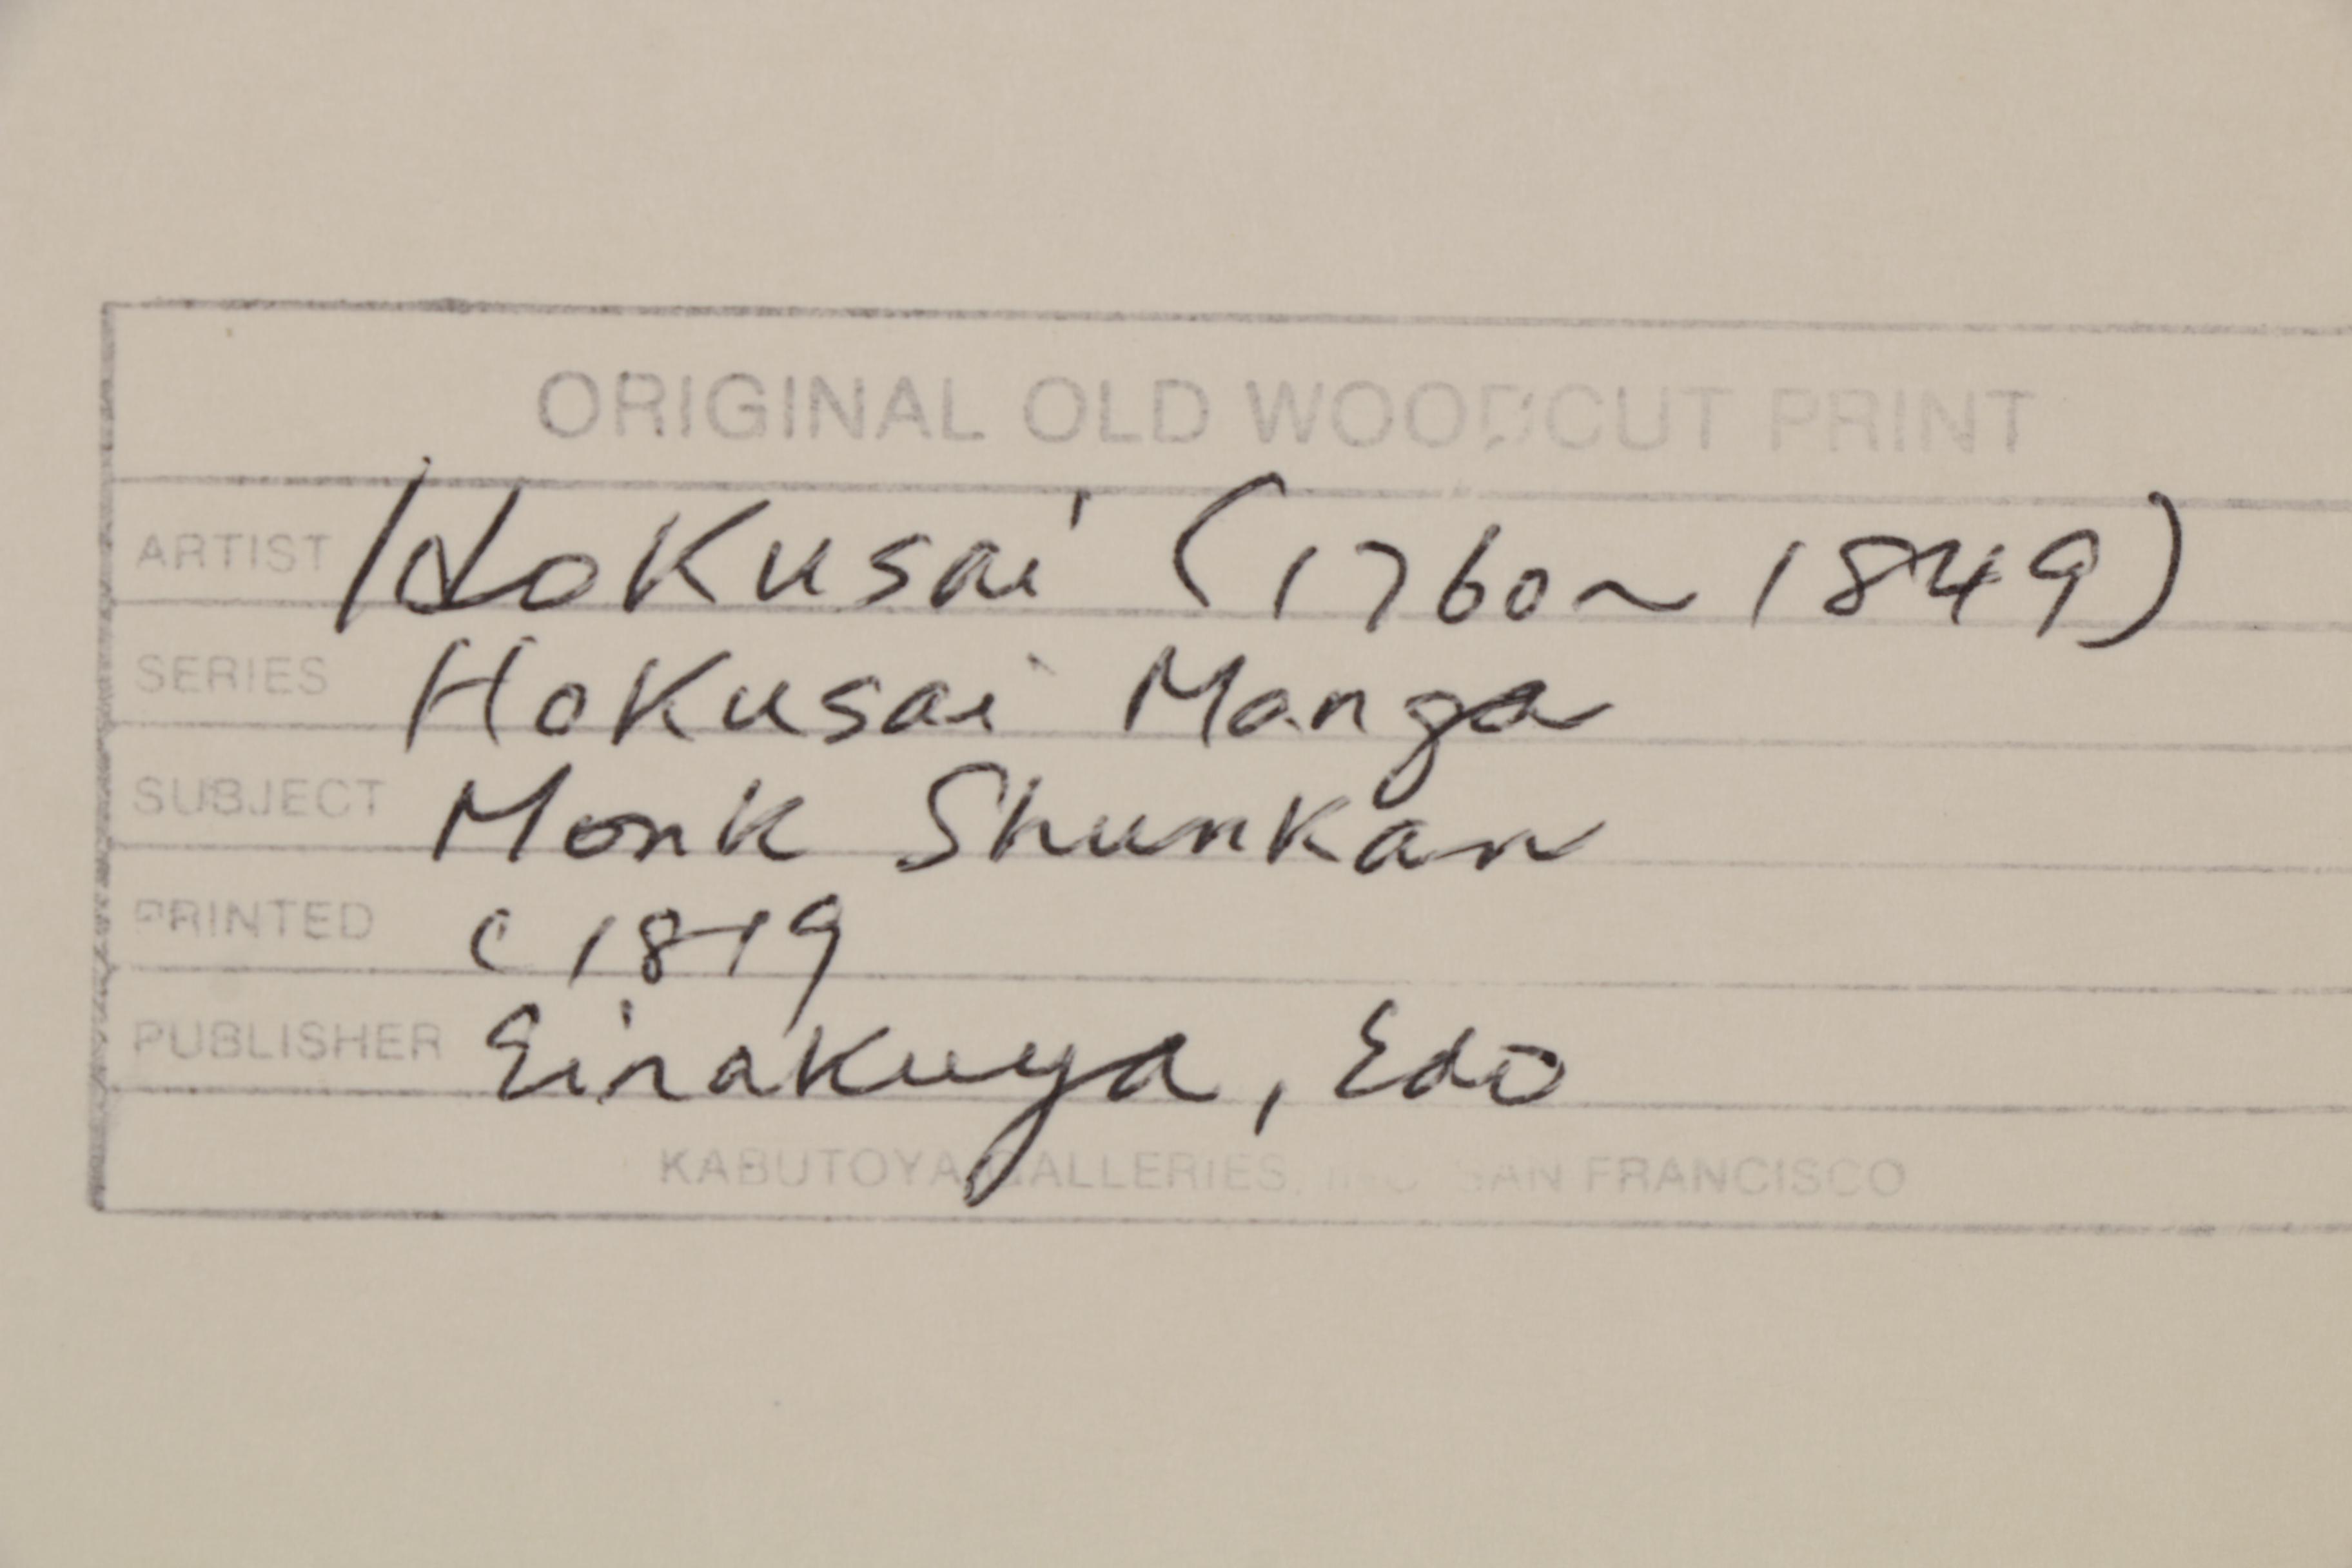 ORIGINAL OLD WOODCUT PRINT
ARTIST Hokusai (1760~1849)
SERIES Hokusai Manga
SUBJECT Monk Shunkan
PRINTED c 1819
PUBLISHER Eirakuya, Edo
KABUTOYA GALLERIES, INC SAN FRANCISCO